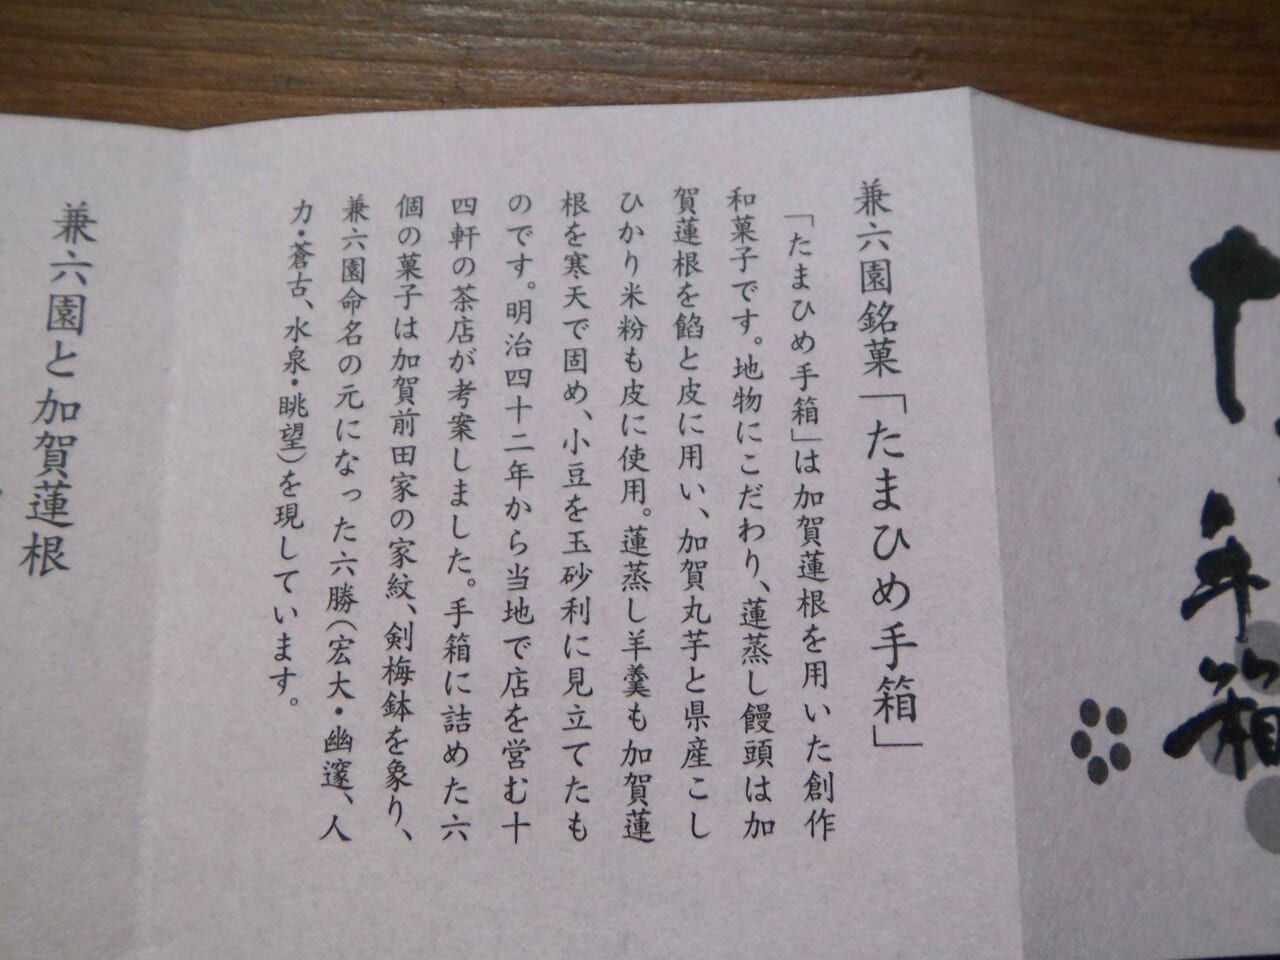 手箱
兼六園銘菓「たまひめ手箱」
「たまひめ手箱」は加賀蓮根を用いた創作
和菓子です。地物にこだわり、蓮蒸し饅頭は加
賀蓮根を餡と皮に用い、加賀丸芋と県産こし
ひかり米粉も皮に使用。蓮蒸し羊羹も加賀蓮
根を寒天で固め、小豆を玉砂利に見立てたも
のです。明治四十二年から当地で店を営む十
四軒の茶店が考案しました。手箱に詰めた六
個の菓子は加賀前田家の家紋、剣梅鉢を象り、
兼六園命名の元になった六勝（宏大・幽邃、人
力・蒼古、水泉・眺望）を現しています。
兼六園と加賀蓮根